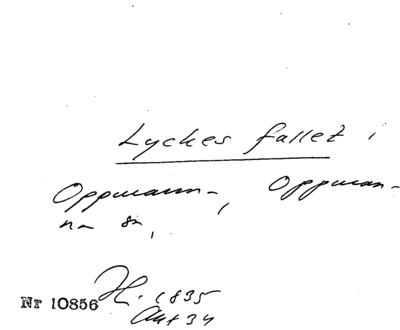 Lyckesfallet i
Oppmann-, Oppman-
na sn,
Nr 10856 H. 1835
Akt 34